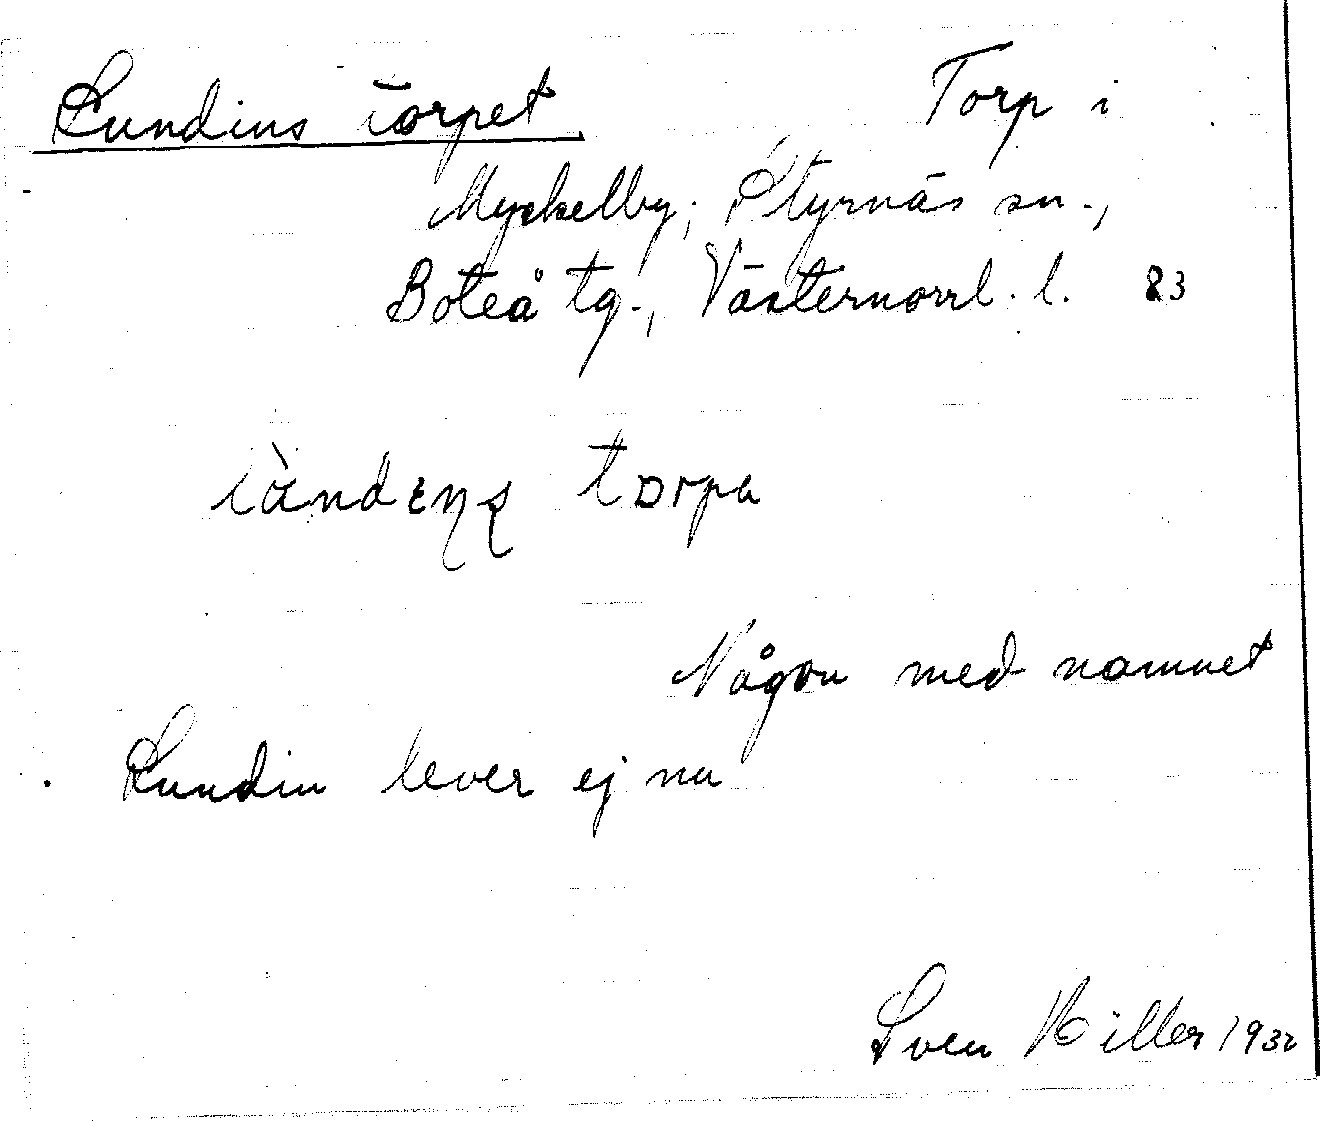 Lundins torpet
Torp i
Myckelby, Styrnäs sn.,
Boteå tg., Västernorrl. l. 83
torpa
Någon med namnet
Lundin lever ej nu
Sven Hiller 1932